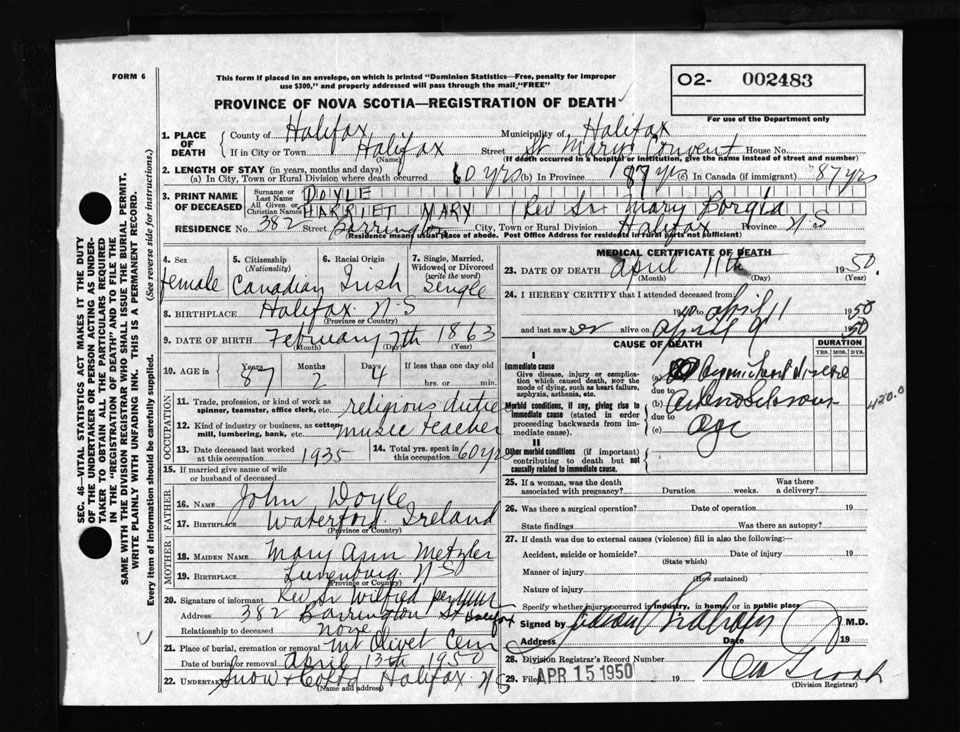 FORM 6
This form if placed in an envelope, on which is printed "Dominion Statistics—Free, penalty for improper
use $300," and properly addressed will pass through the mail "FREE"
O2- 002483
PROVINCE OF NOVA SCOTIA—REGISTRATION OF DEATH
For use of the Department only
1. PLACE OF DEATH County of Halifax Municipality of Halifax
If in City or Town Halifax Street St Marys Convent House No.
(Name) (If death occurred in a hospital or institution, give the name instead of street and number)
2. LENGTH OF STAY (in years, months and days)
(a) In City, Town or Rural Division where death occurred 60 yrs (b) In Province 87 yrs (c) In Canada (if immigrant) 87 yrs
3. PRINT NAME OF DECEASED Surname or Last Name DOYLE
All Given or Christian Names HARRIET MARY (Rev Sr Mary Borgia
RESIDENCE No. 382 Street Barrington City, Town or Rural Division Halifax Province N S
(Residence means usual place of abode. Post Office Address for residents in rural parts not sufficient)
4. Sex
female
5. Citizenship
(Nationality)
Canadian
6. Racial Origin
Irish
7. Single, Married,
Widowed or Divorced
(write the word)
Single
8. BIRTHPLACE Halifax N S
(Province or Country)
9. DATE OF BIRTH February 7th 1863
(Month) (Day) (Year)
10. AGE in Years 87 Months 2 Days 4 If less than one day old
hrs. or min.
OCCUPATION
11. Trade, profession, or kind of work as
spinner, teamster, office clerk, etc. religious duties
12. Kind of industry or business, as cotton
mill, lumbering, bank, etc. music teacher
13. Date deceased last worked
at this occupation 1935
14. Total yrs. spent in
this occupation 60 yrs
15. If married give name of wife
or husband of deceased
FATHER
16. NAME John Doyle
17. BIRTHPLACE Waterford Ireland
(Province or Country)
MOTHER
18. MAIDEN NAME Mary Ann Metzler
19. BIRTHPLACE Lunenburg N S
(Province or Country)
20. Signature of informant Rev Sr Wilfred
Address 382 Barrington St Halifax
Relationship to deceased none
21. Place of burial, cremation or removal Mt Olivet Cem
Date of burial or removal April 13th 1950
22. UNDERTAKER Snow & Co Ltd Halifax N S
(Name and address)
MEDICAL CERTIFICATE OF DEATH
23. DATE OF DEATH April 11th 1950.
(Month) (Day)
24. I HEREBY CERTIFY that I attended deceased from
1940 to April 11 1950
and last saw er alive on April 9 1950
CAUSE OF DEATH
DURATION
YRS. MOS. DYS.
I
Immediate cause
Give disease, injury or complica-
tion which caused death, NOT the
mode of dying, such as heart failure,
asphyxia, asthenia, etc.
Morbid conditions, if any, giving rise to
immediate cause (stated in order
proceeding backwards from im-
mediate cause).
II
Other morbid conditions (if important)
contributing to death but not
causally related to immediate cause.
(a) Organic heart disease
due to
(b) Arteriosclerosis 420.0
due to
(c) Age
25. If a woman, was the death
associated with pregnancy? Duration weeks. Was there
a delivery?
26. Was there a surgical operation? Date of operation 19
State findings Was there an autopsy?
27. If death was due to external causes (violence) fill in also the following:—
Accident, suicide or homicide? Date of injury 19
(State which)
Manner of injury
(How sustained)
Nature of injury
Specify whether injury occurred in industry, in home, or in public place
Signed by M.D.
Address Date 19
28. Division Registrar's Record Number
29. Filed APR 15 1950 19
(Division Registrar)
SEC. 46—VITAL STATISTICS ACT MAKES IT THE DUTY
OF THE UNDERTAKER OR PERSON ACTING AS UNDER-
TAKER TO OBTAIN ALL THE PARTICULARS REQUIRED
IN THE "REGISTRATION OF DEATH" AND TO FILE THE
SAME WITH THE DIVISION REGISTRAR WHO SHALL ISSUE THE BURIAL PERMIT.
WRITE PLAINLY WITH UNFADING INK. THIS IS A PERMANENT RECORD.
Every item of information should be carefully supplied. (See reverse side for instructions.)